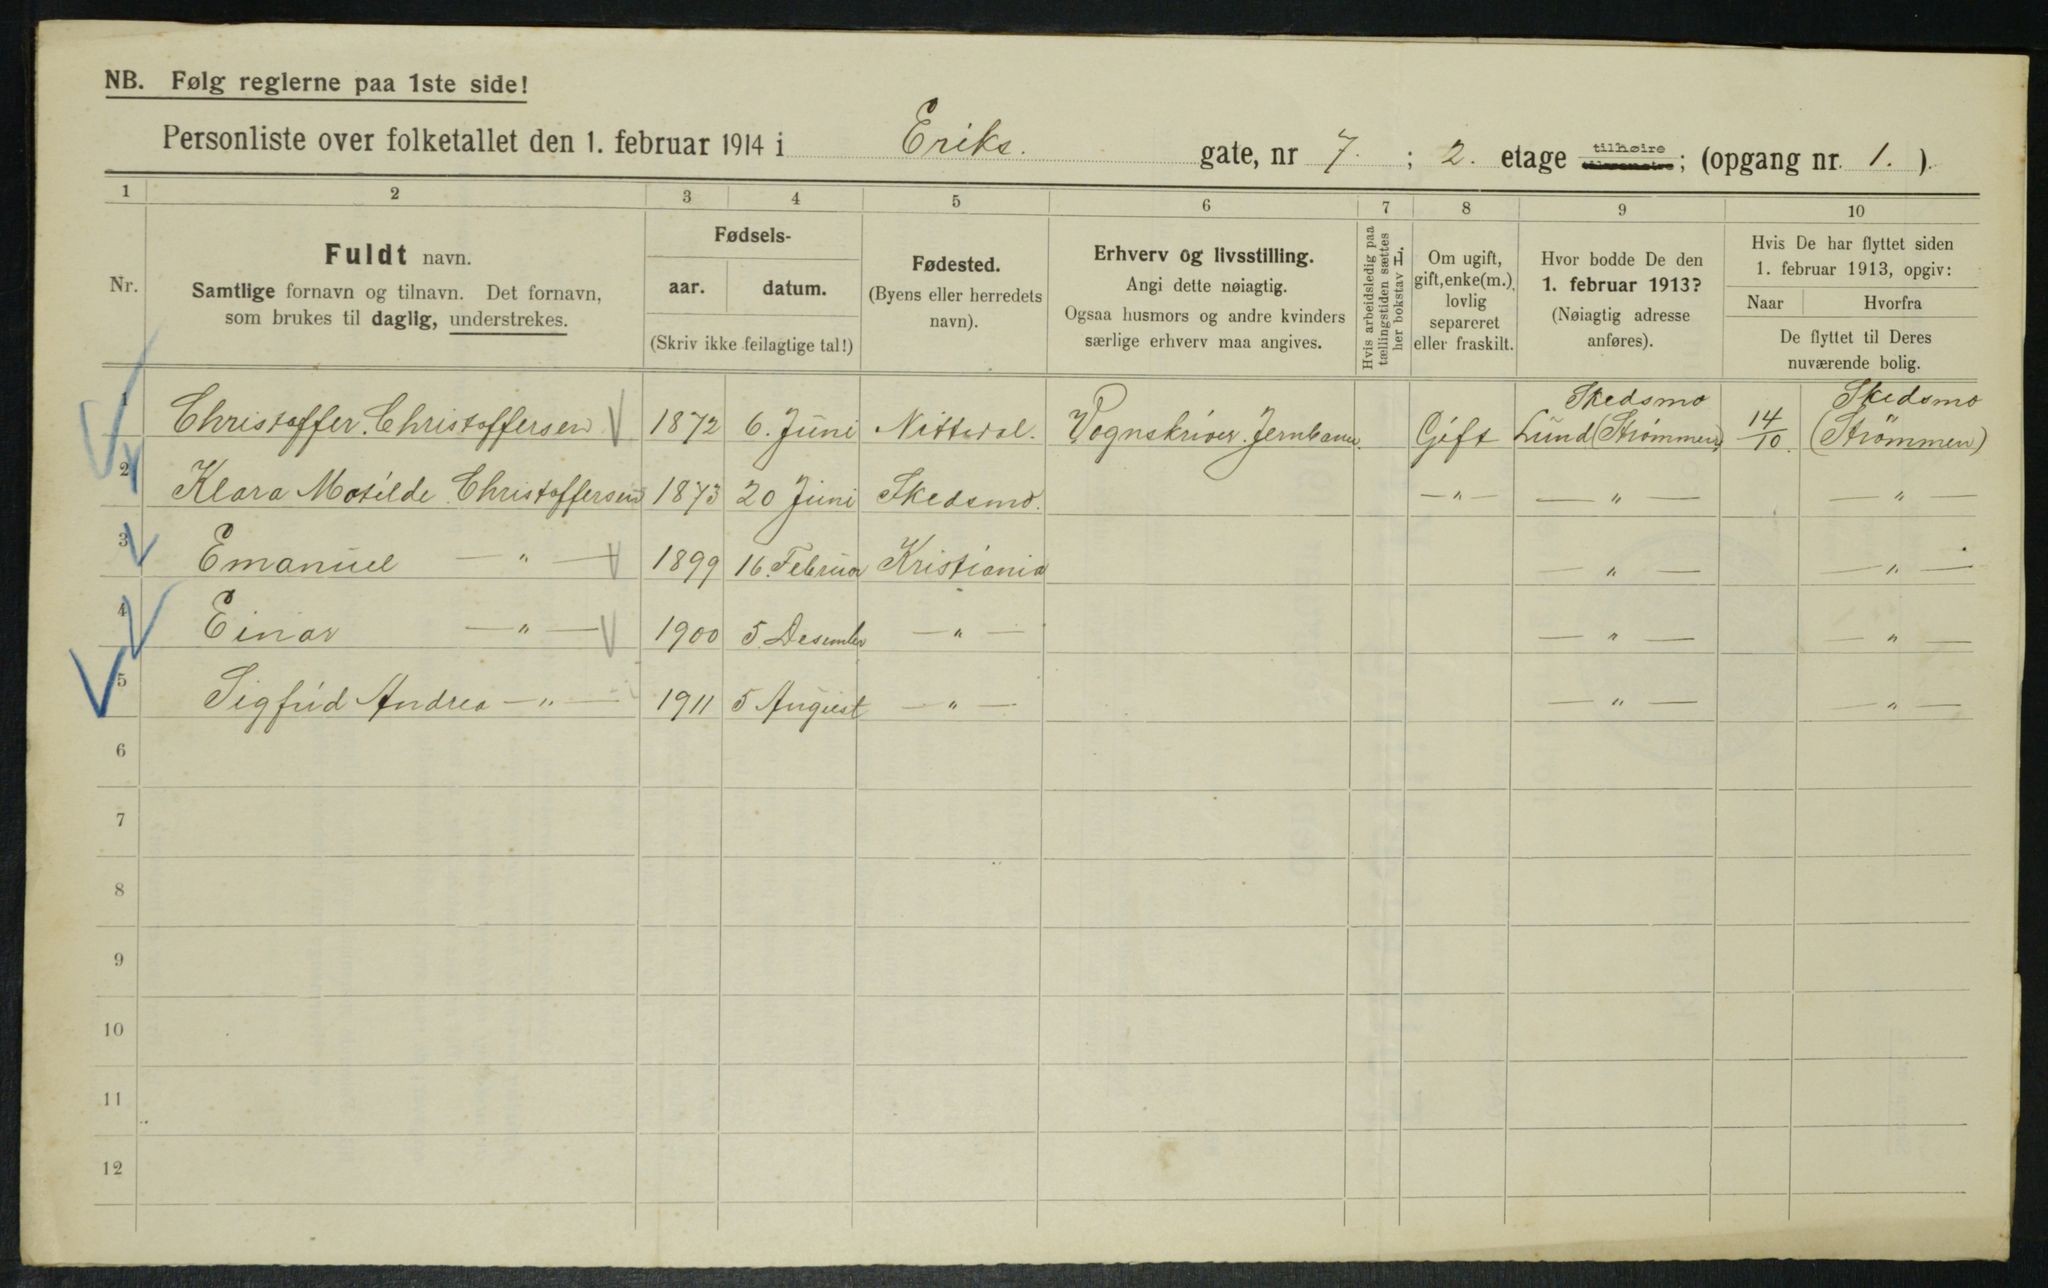 NB. Følg reglerne paa 1ste side!
Personliste over folketallet den 1. februar 1914 i Eriks. gate, nr 7. ; 2. etage tilhøire ; (opgang nr. 1. ).
1 2 3 4 5 6 7 8 9 10
Nr.
Fuldt navn.
Samtlige fornavn og tilnavn. Det fornavn,
som brukes til daglig, understrekes.
Fødsels-
aar. datum.
(Skriv ikke feilagtige tal!)
Fødested.
(Byens eller herredets
navn).
Erhverv og livsstilling.
Angi dette nøiagtig.
Ogsaa husmors og andre kvinders
særlige erhverv maa angives.
Hvis arbeidsledig paa
tællingstiden sættes
her bokstav L.
Om ugift,
gift, enke(m.),
lovlig
separeret
eller fraskilt.
Hvor bodde De den
1. februar 1913?
(Nøiagtig adresse
anføres).
Hvis De har flyttet siden
1. februar 1913, opgiv:
Naar Hvorfra
De flyttet til Deres
nuværende bolig.
Skedsmo Skedsmo
1 Christoffer. Christoffersen 1872 6. Juni Nittedal. Vognskriver. Jernbanen. Gift Lund (Strömmen) 14/10. (Strömmen)
2 Klara Matilde Christoffersen 1873 20 Juni Skedsmo. — " — — " — — " —
3 Emanuel — " — 1899 16. Februar Kristiania — " — — " —
4 Einar — " — 1900 5. Desember — " — — " — — " —
5 Sigfrid Andrea — " — 1911 5 August — " — — " — — " —
6
7
8
9
10
11
12